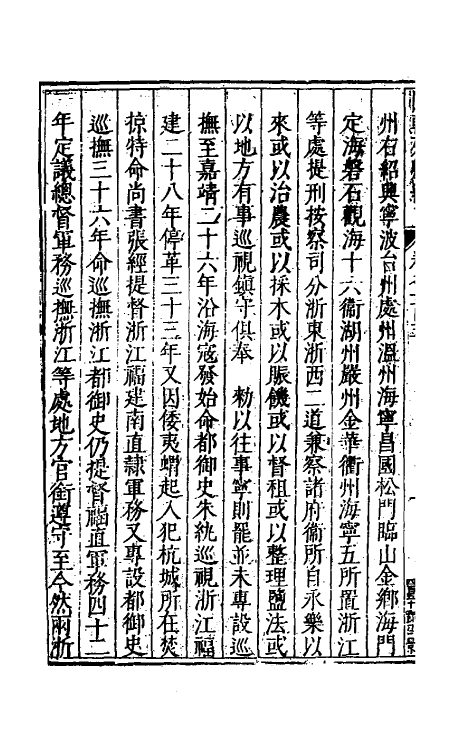 州右紹興寧波台州處州溫州海寧昌國松門臨山金鄉海門
定海磐石觀海十六衞湖州嚴州金華衢州海寧五所置浙江
等處提刑按察司分浙東浙西二道兼察諸府衞所自永樂以
來或以治農或以採木或以賑饑或以督租或以整理鹽法或
以地方有事巡視鎮守俱奉 勑以往事寧則罷並未專設巡
撫至嘉靖二十六年沿海寇發始命都御史朱紈巡視浙江福
建二十八年停革三十三年又因倭夷蝟起入犯杭城所在焚
掠特命尚書張經提督浙江福建南直隸軍務又專設都御史
巡撫三十六年命巡撫浙江都御史仍提督福直軍務四十二
年定議總督軍務巡撫浙江等處地方官銜遵守至今然兩浙